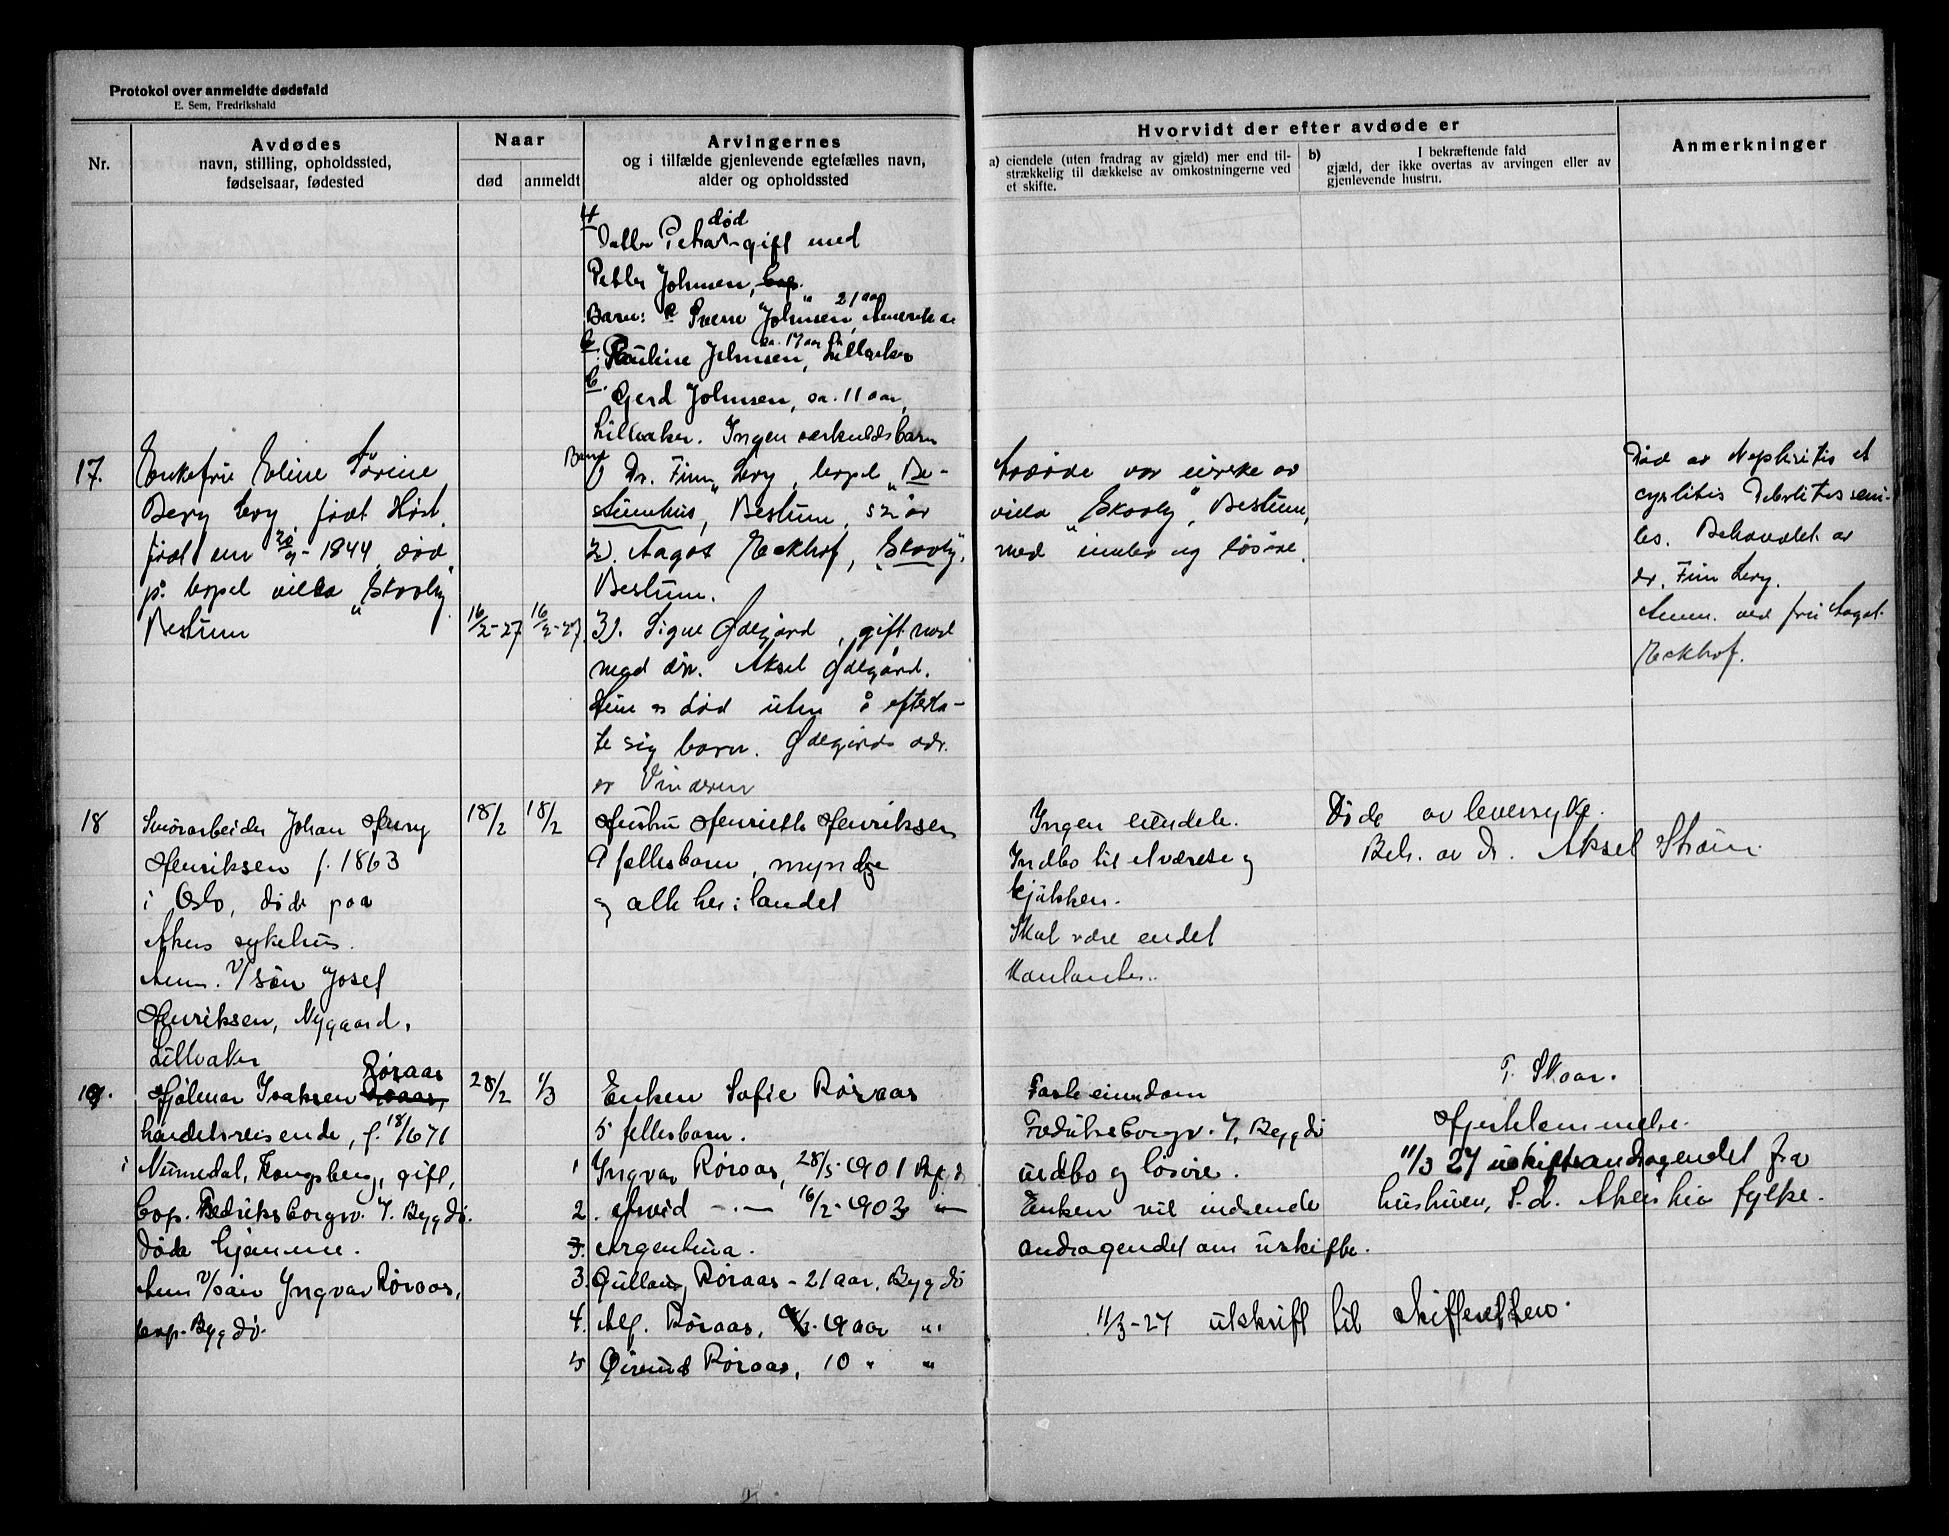 Protokol over anmeldte dødsfald
E. Sem, Fredrikshald
Nr.
Avdødes
navn, stilling, opholdssted,
fødselsaar, fødested
Naar
død
anmeldt
Arvingernes
og i tilfælde gjenlevende egtefælles navn,
alder og opholdssted
Hvorvidt der efter avdøde er
a) eiendele (uten fradrag av gjæld) mer end til-
strækkelig til dækkelse av omkostningerne ved
et skifte.
b) I bekræftende fald
gjæld, der ikke overtas av arvingen eller av
gjenlevende hustru.
Anmerkninger
4
død
gift med
Petter Johnsen,
21 aar
Barn: a Sverre Johnsen, Amerika
ca. 17 aar
b. Pauline Johnsen, Lilleaker
c. Gerd Johnsen, ca. 11 aar,
Lilleaker. Ingen særkuldsbarn
17.
Enkefru Eline Sørine
Berg Levy, født Høst,
født den 1844, død
på bopel villa "Skovly",
Bestum
16/2-27
16/2-27.
Barn
1) Dr. Finn Levy, bopel "Be-
stumhus", Bestum, 52 år
2). Aagot Eckhof, "Skovly",
Bestum.
3). Signe Ødegård, gift med
med dr. Aksel Ødegård.
Hun er død uten å efterla-
te sig barn. Ødegårds adr.
er Vinderen
Avdøde var eierske av
villa "Skovly", Bestum,
med innbo og løsøre.
Død av Nephritis et
cystitis Debilitas seni-
lis. Behandlet av
dr. Finn Levy.
Anm. ved fru Aagot
Eckhof.
18
Murarbeider Johan Henry
Henriksen f. 1863
i Oslo, døde paa
Akers sykehus.
Anm. v/søn Josef
Henriksen, Nygaard,
Lilleaker
18/2
18/2
Hustru Henriette Henriksen
9 fellesbarn, myndge
og alle her i landet
Ingen eiendele.
Indbo til 1 værelse og
kjøkken.
Skal være endel
Kontanter.
Døde av leversyke.
Beh. av dr. Aksel Strøm
19.
Røraas
Hjalmar Isaksen
handelsreisende, f. 18/6 71
i Numedal, Kongsberg, gift,
bop. Fredriksborgv. 7. Bygdø.
døde hjemme.
Anm v/søn Yngvar Røraas,
bop. Bygdø.
28/2
1/3
Enken Sofie Røraas
5 fellesbarn.
1 Yngvar Røraas, 28/5-901 Bygdø
2. Arvid -"- 16/2-903 -"-
3. Argentina.
3. Gullaug Røraas - 21 aar, Bygdø
4. Alf. Røraas, 19 aar "
5 Øivind Røraas, 10 " "
Faste eiendom
Fredriksborgv. 7, Bygdø
indbo og løsøre.
Enken vil indsende
andragendet om uskifte.
T. Skaar.
Hjertelammelse.
11/3 27 uskifteandragendet fra
hustruen, S.d. Akershus fylke.
11/3-27 utskrift til skifteretten.